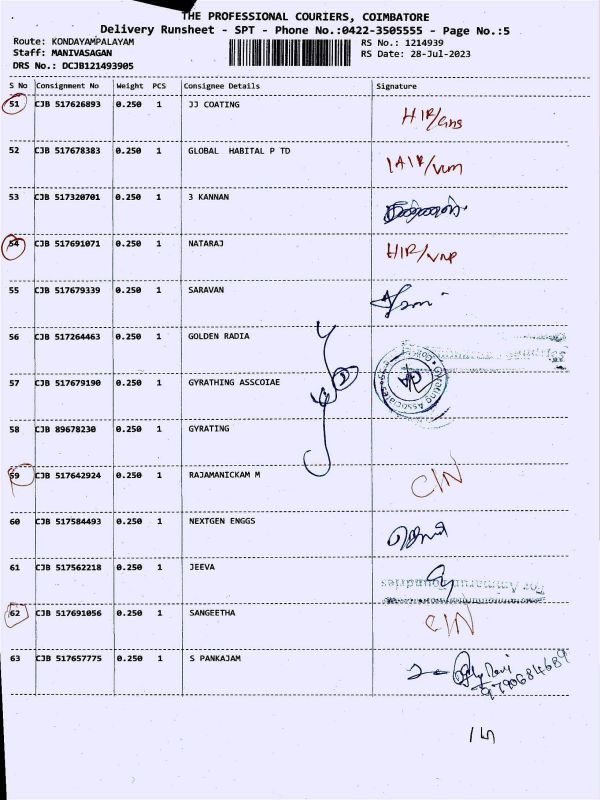 THE PROFESSIONAL COURIERS, COIMBATORE
Delivery Runsheet - SPT - Phone No.:0422-3505555 - Page No.:5
Route: KONDAYAMPALAYAM
RS No.: 1214939
Staff: MANIVASAGAN
RS Date: 28-Jul-2023
DRS No.: DCJB121493905
S No Consignment No Weight PCS Consignee Details Signature
51 CJB 517626893 0.250 1 JJ COATING
52 CJB 517678383 0.250 1 GLOBAL HABITAL P TD
53 CJB 517320701 0.250 1 3 KANNAN
54 CJB 517691071 0.250 1 NATARAJ HIR/VNP
55 CJB 517679339 0.250 1 SARAVAN
56 CJB 517264463 0.250 1 GOLDEN RADIA
57 CJB 517679190 0.250 1 GYRATHING ASSCOIAE
Gyrating Associates
58 CJB 89678230 0.250 1 GYRATING
59 CJB 517642924 0.250 1 RAJAMANICKAM M C/N
60 CJB 517584493 0.250 1 NEXTGEN ENGGS
61 CJB 517562218 0.250 1 JEEVA
62 CJB 517691056 0.250 1 SANGEETHA C/N
63 CJB 517657775 0.250 1 S PANKAJAM
9790684689